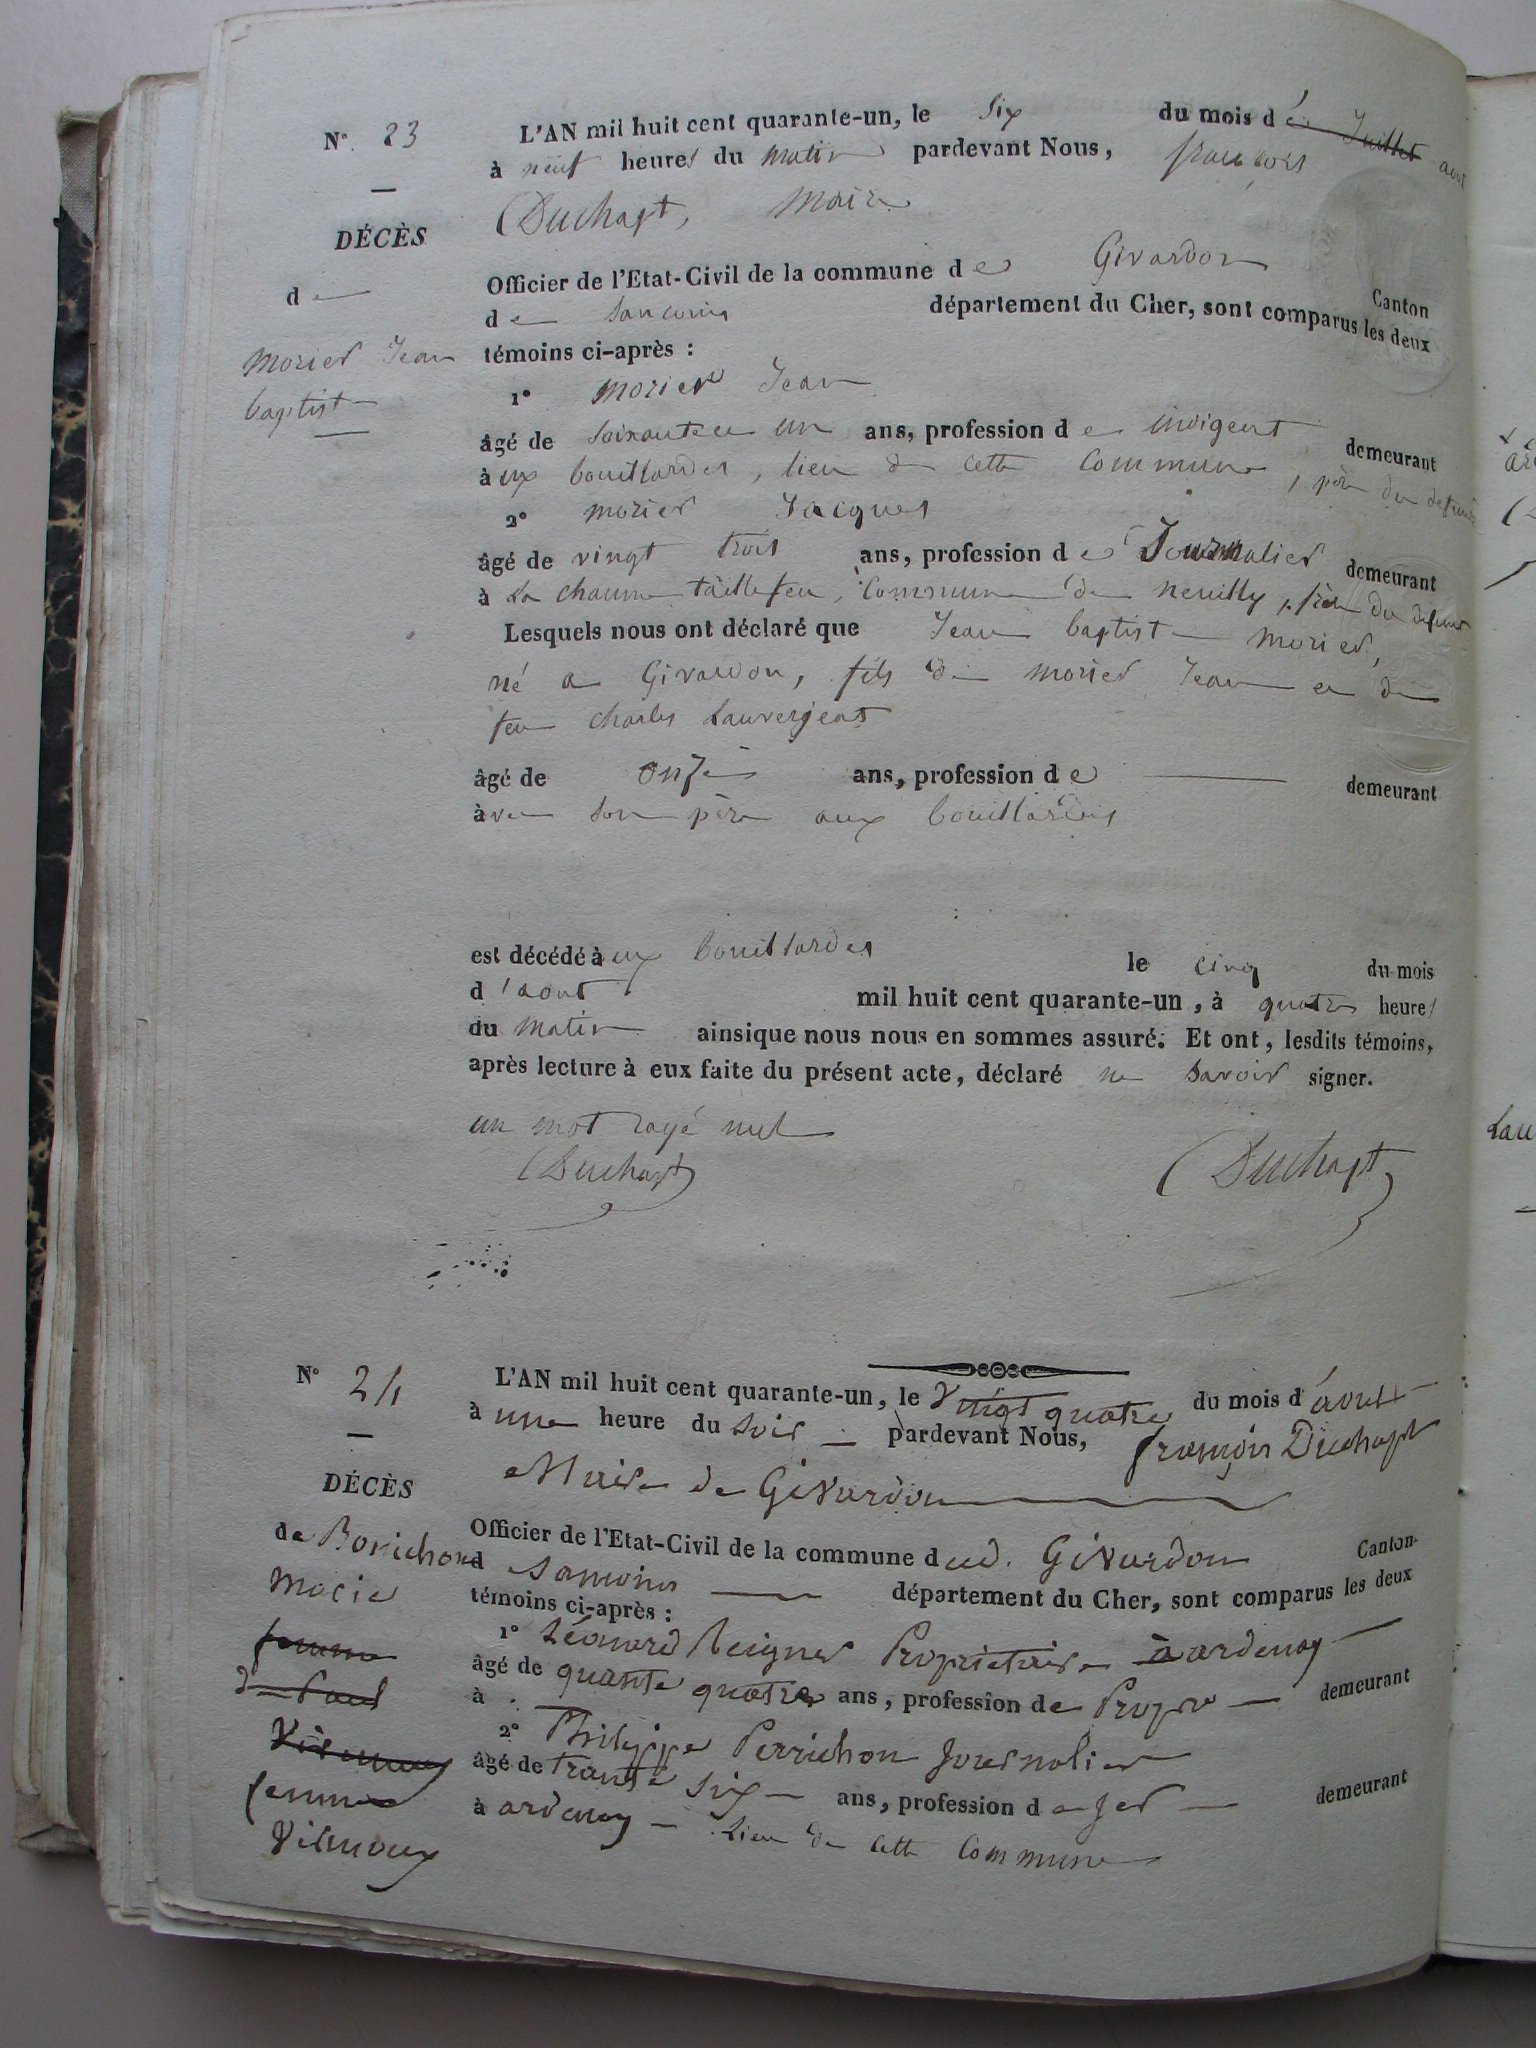 N° 23
L'AN mil huit cent quarante-un, le six du mois d' Juillet aout
à neuf heures du matin pardevant Nous, francois
Duchapt, Maire
DÉCÈS
de
Morier Jean
baptiste
Officier de l'Etat-Civil de la commune de Givardon Canton
de Sancoins département du Cher, sont comparus les deux
témoins ci-après :
1° Morier Jean
âgé de soixante un ans, profession de indigent demeurant
à ux bouillardes, lieu de cette commune, père du defunt
2° morier Jacques
âgé de vingt trois ans, profession de Journalier demeurant
à La chaume taillefeu, commune de neuilly, frère du defunt
Lesquels nous ont déclaré que Jean baptiste morier,
né a Givardon, fils de morier Jean et de
feu charles Lauvergeat
âgé de onze ans, profession de demeurant
àvec son père aux bouillardes
est décédé àux bouillardes le cinq du mois
d'aout mil huit cent quarante-un, à quatre heures
du matin ainsique nous nous en sommes assuré. Et ont, lesdits témoins,
après lecture à eux faite du présent acte, déclaré ne savoir signer.
un mot rayé nul
Duchapt Duchapt
N° 24
L'AN mil huit cent quarante-un, le Vingt quatre du mois d'aout
à une heure du soir pardevant Nous, françois Duchapt
Maire de Givardon
DÉCÈS
de Borichon
Marie
femme
de Paul
femme
Vilmoux
Officier de l'Etat-Civil de la commune dud. Givardon Canton
d sancoins département du Cher, sont comparus les deux
témoins ci-après :
1° Léonard Proprietaire à ardenay
âgé de quante quatre ans, profession de Propre demeurant
à
2° Philippe Perrichon Journalier
âgé de trante six ans, profession de Jer demeurant
à ardenay Lieu de cette Commune